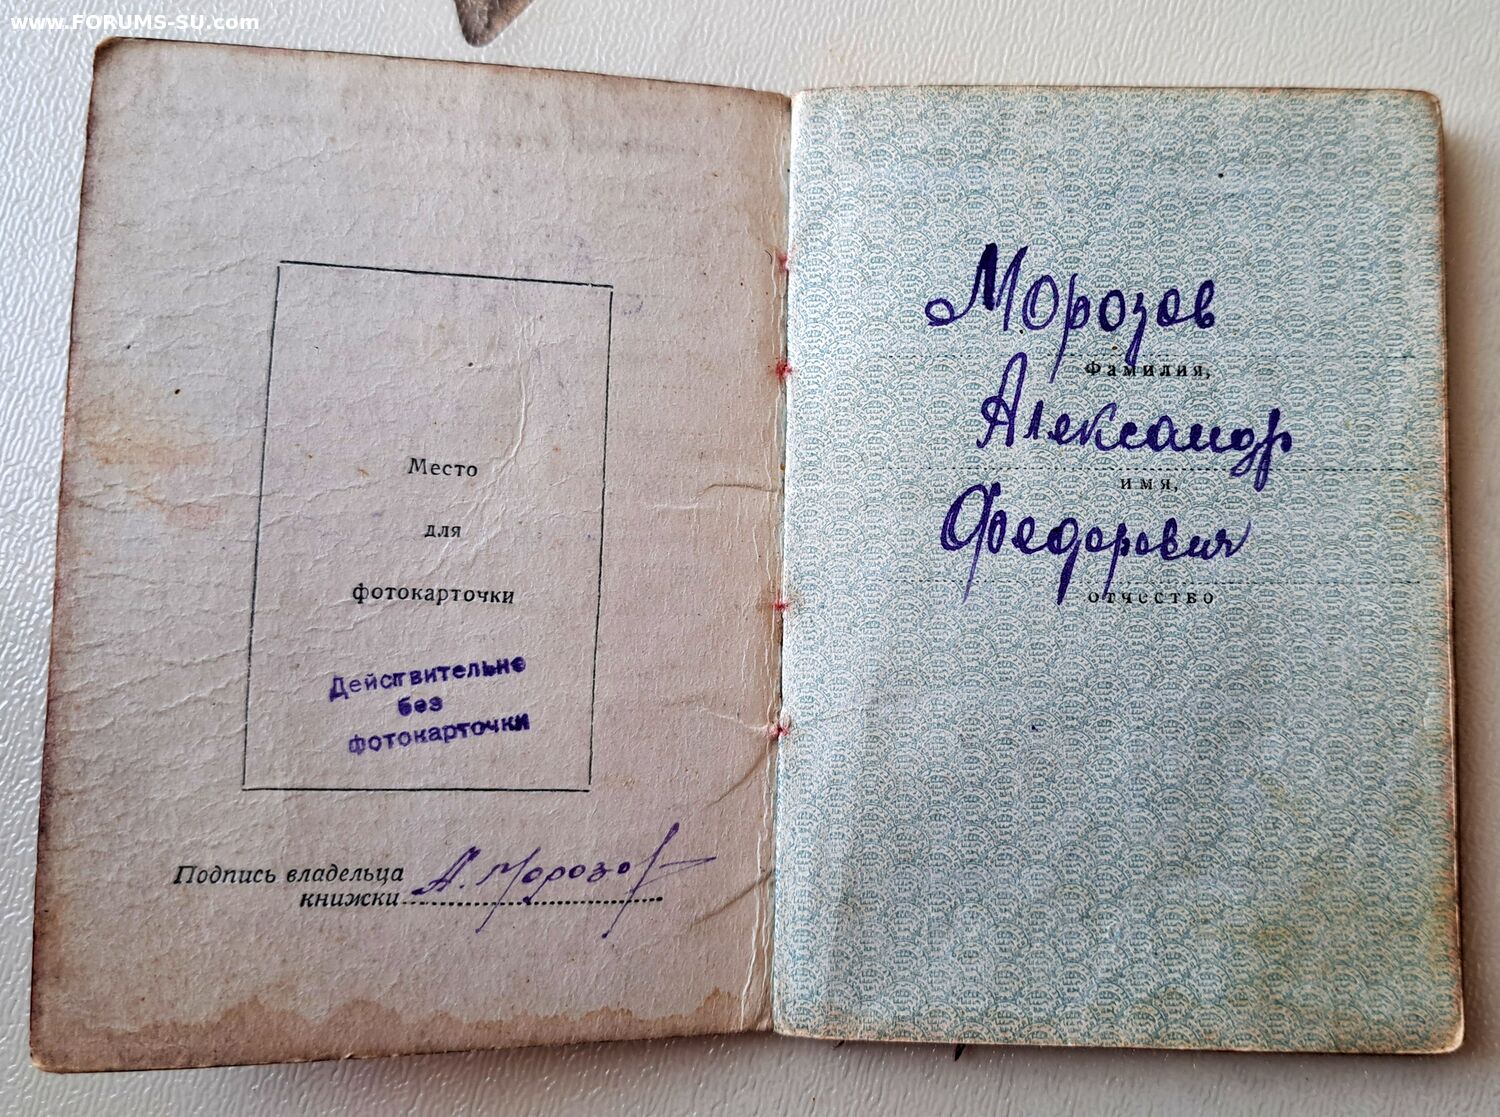 www.FORUMS-SU.com
Место
для
фотокарточки
Действительно
без
фотокарточки
Подпись владельца
книжки А. Морозов
Морозов
Фамилия,
Александр
имя,
Федорович
отчество